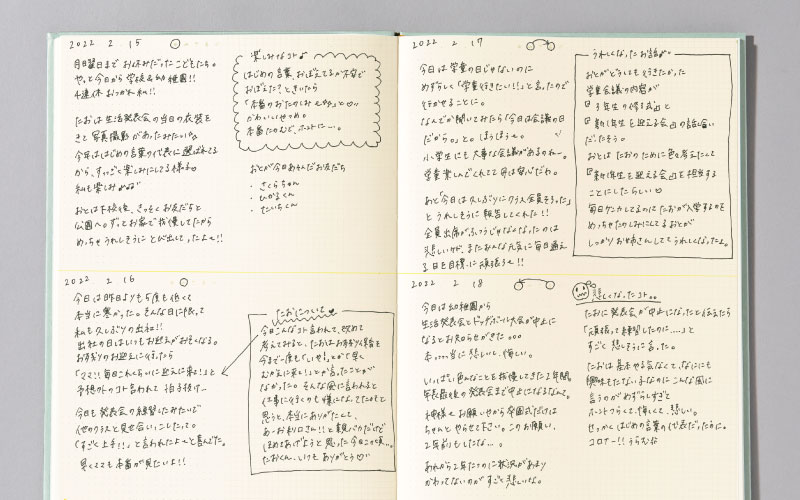 2022 2 15
月曜日までお休みだったこどもたち。
やっと今日から学校&幼稚園!!
4連休おつかれ私!!
たおは生活発表会の当日の衣装を
きて写真撮影があったみたい。
今年ははじめの言葉の代表に選ばれてる
から、すっごく楽しみにしてる様子。
私も楽しみ
おとは下校後、さっそくお友だちと
公園へ。ずっとお家で我慢してたから
めっちゃうれしそうにとび出してったよー!!
楽しみなコト♪
はじめの言葉、おぼえてるか不安で
おぼえた?ときいたら
「本番のおたのしみ
かわいいやつめ。
本番たのむぞ、ホントにー。
おとが今日あそんだお友だち
・さくらちゃん
・ひかるくん
・たいちくん
2022 2 16
今日は昨日よりも5度も低くて
本当に寒かった。そんな日に限って
私も久しぶりの出社!!
出社の日はいつもお迎えがおそくなる。
おずおずのお迎えに行ったら
「ママ!!毎日これくらいに迎えに来て!」と
予想外のコト言われて拍子抜け…
今日も発表会の練習したみたいで
他のクラスと見せ合いっこしたって。
「すごく上手!!」と言われたよーと喜んでた。
早くママも本番が見たいよ!!
たおについて
今日こんなコト言われて、改めて
考えてみると、たおはおずおず保育を
今まで一度も「いやだ」とか「早く
むかえに来い!」とか言ったことが
なかった。そんな風に言われると
仕事に行くのも嫌になってたかもって
思うと、本当にありがたくて、
あーお利口さん!!と親バカだけど
ほめてあげようと思った今日この頃…。
たおくん、いつもありがとう♡
2022 2 17
今日は学童の日じゃないのに
めずらしく「学童行きたい!!」と言ったので
行かせることに。
なんでか聞いてみたら「今日は会議の日
だから。」と。ほうほうー。
小学生にも大事な会議があるのねー。
学童楽しんでくれてて母は安心だわ。
あと「今日は久しぶりにクラス全員そろった」
とうれしそうに報告してくれた!!
全員出席がふつうじゃなくなったのは
悲しいけど、またみんな元気に毎日通え
る日を目標に頑張ろー!!
うれしくなったお話
おとがどうしても行きたかった
学童会議の内容が
『3年生の修了式』と
『新1年生を迎える会』の話し合い
だったそう。
おとはたおのために色々考えたくて
『新1年生を迎える会』を担当する
ことにしたらしい♡
毎日ケンカしてるのにたおが入学するのを
めっちゃたのしみにしてるおとが
しっかりお姉さんしててうれしくなったよ。
2022 2 18
今日は幼稚園から
生活発表会とドッヂボール大会が中止に
なるとお知らせがきた。。。
本。。。当に悲しいし、悔しい。
いっぱい色んなことを我慢してきた2年間。
年長最後の発表会まで中止になるなんて。
神様、お願いやから卒園式だけは
ちゃんとやらせて下さい。このお願い、
2年前もしたな…。
あれから2年たつのに状況があまり
かわってないのがすごく悲しいな。
悲しくなったコト。。
たおに発表会が中止になったと伝えたら
「頑張って練習したのに…」と
すごく悲しそうに言った。
たおは基本やる気なくて、なににも
興味をもたない子なのにこんな風に
言うのがめずらしすぎて
ホントつらくて、悔しくて、悲しい。
せっかくはじめの言葉の代表だったのに。
コロナー!!うらむな